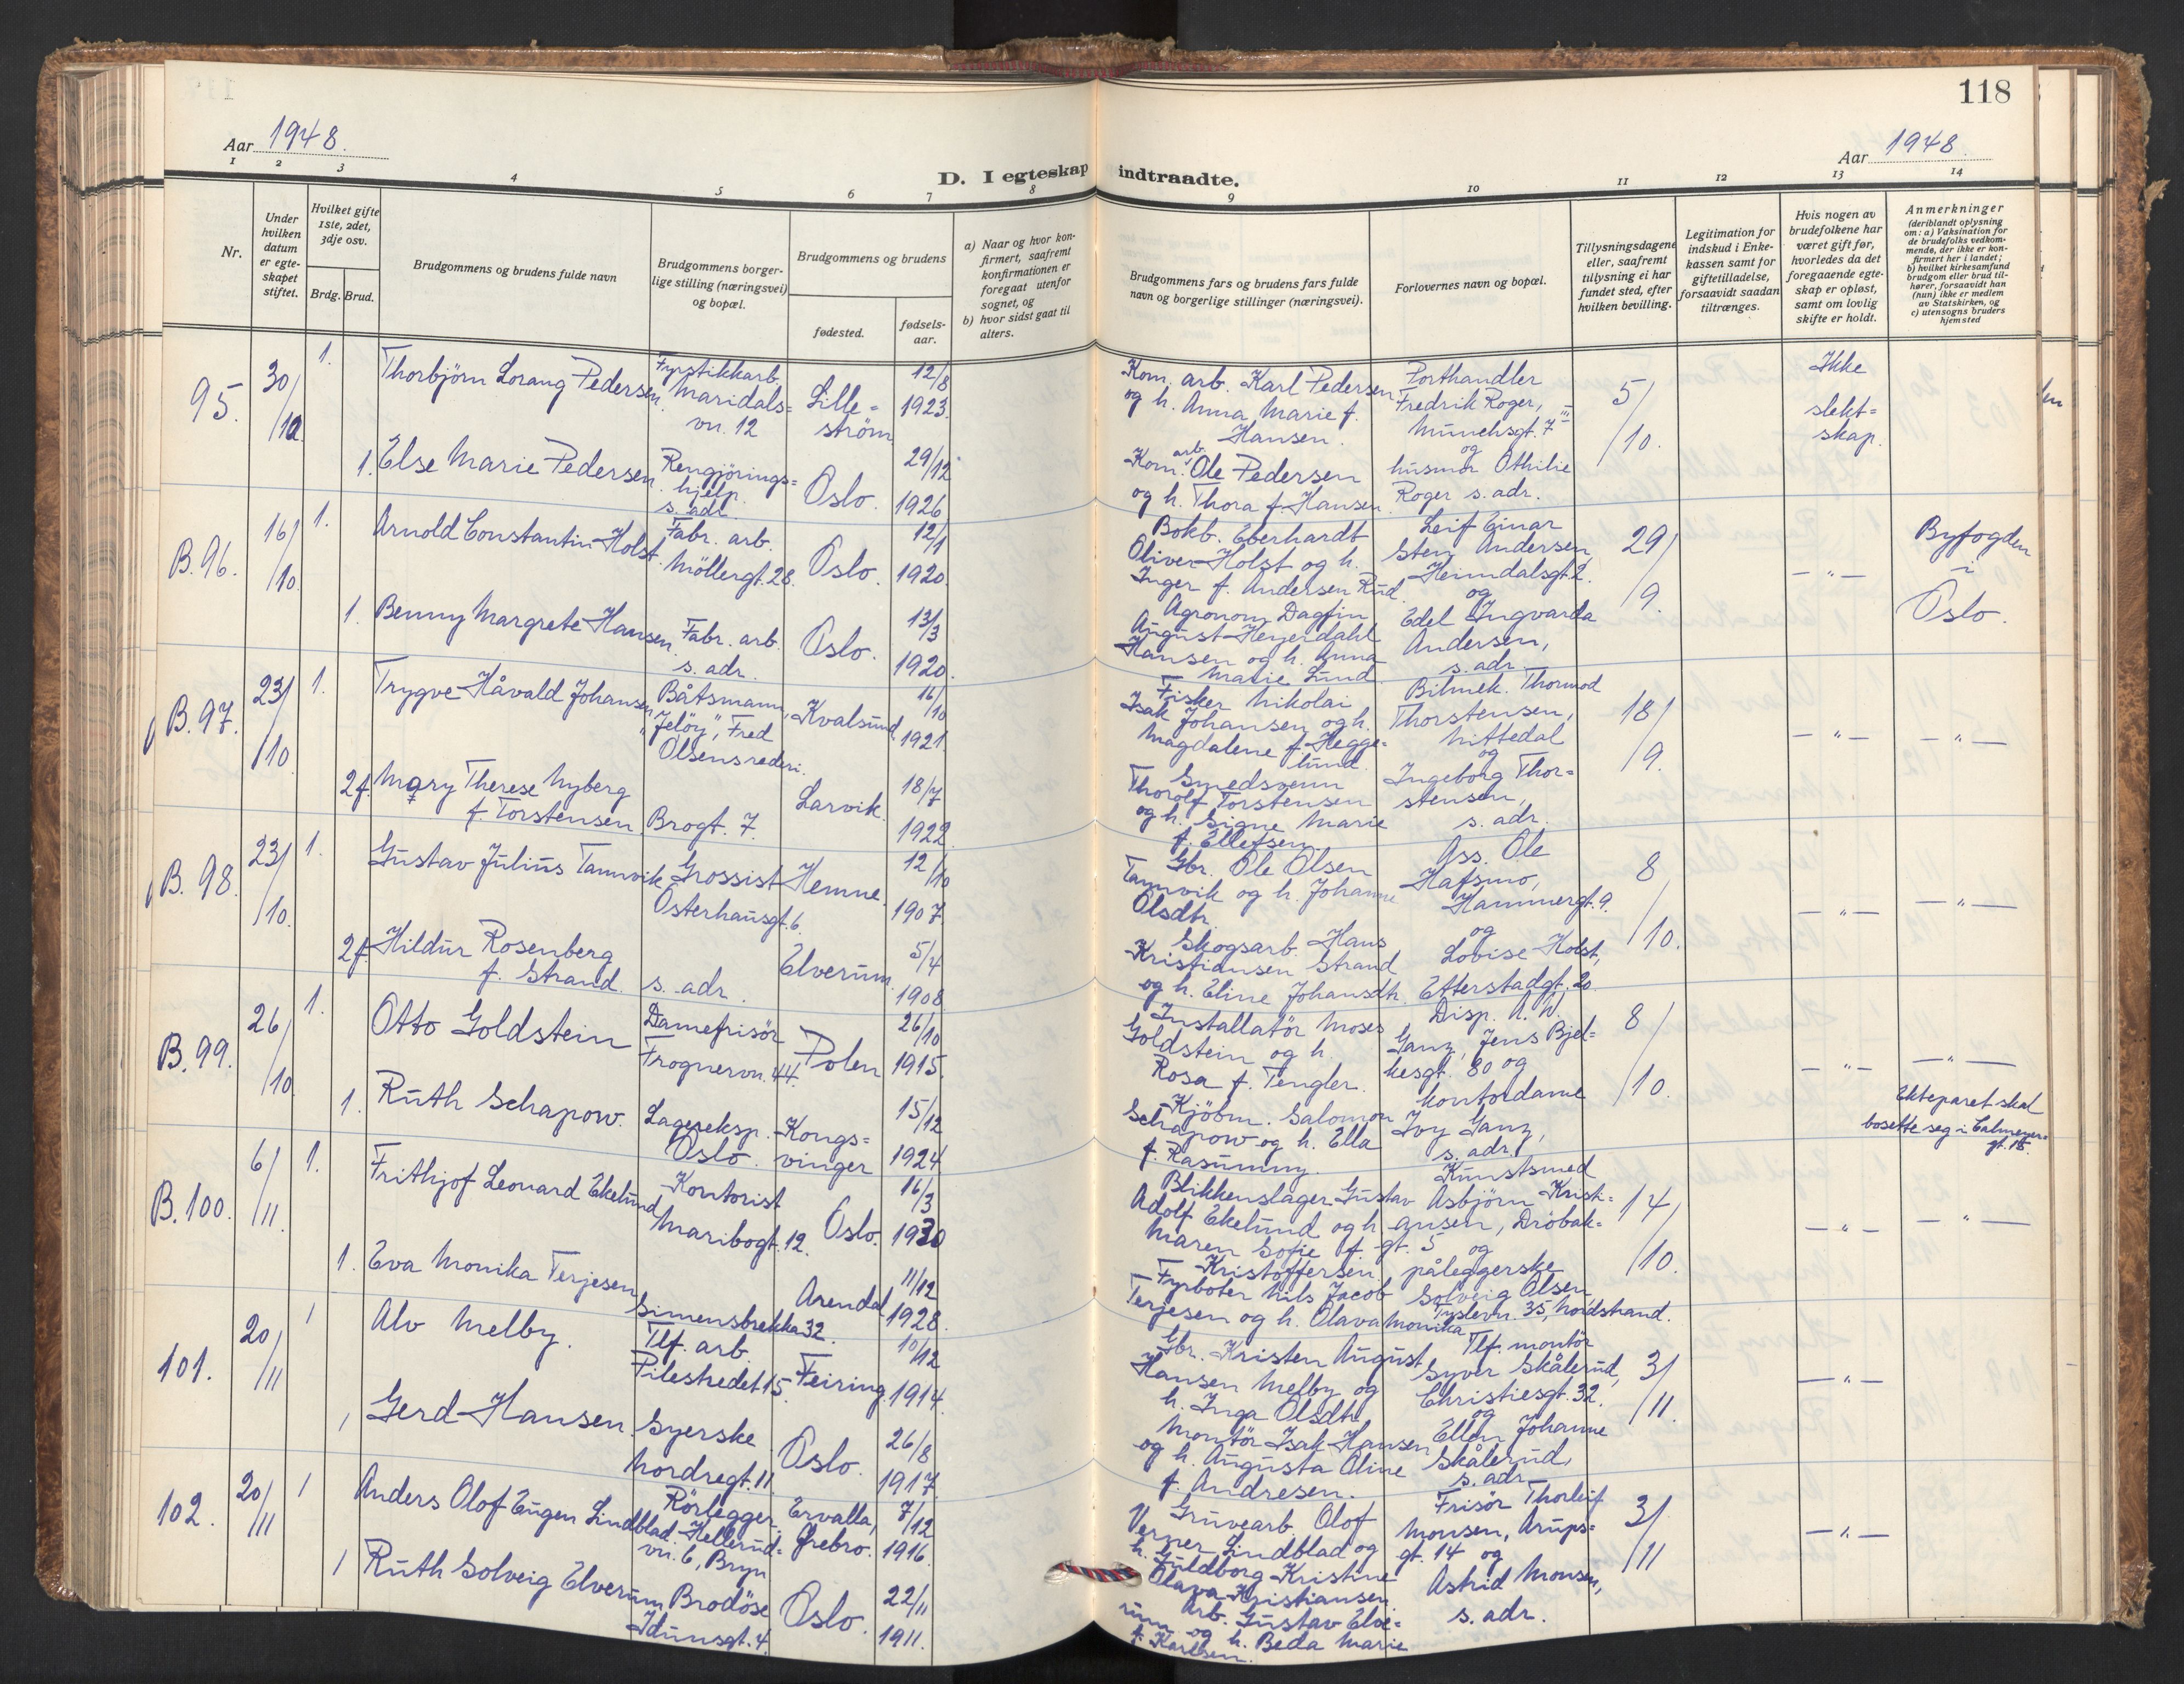 118
Aar 1948.
Aar 1948.
D. I egteskap indtraadte.
1 2 3 4 5 6 7 8 9 10 11 12 13 14
Nr.
Under hvilken datum er egteskapet stiftet.
Hvilket gifte 1ste, 2det, 3dje osv.
Brdg. Brud.
Brudgommens og brudens fulde navn
Brudgommens borgerlige stilling (næringsvei) og bopæl.
Brudgommens og brudens
fødested.
fødselsaar.
a) Naar og hvor konfirmert, saafremt konfirmationen er foregaat utenfor sognet, og
b) hvor sidst gaat til alters.
Brudgommens fars og brudens fars fulde navn og borgerlige stillinger (næringsvei).
Forlovernes navn og bopæl.
Tillysningsdagene eller, saafremt tillysning ei har fundet sted, efter hvilken bevilling.
Legitimation for indskud i Enkekassen samt for giftetilladelse, forsaavidt saadan tiltrænges.
Hvis nogen av brudefolkene har været gift før, hvorledes da det foregaaende egteskap er opløst, samt om lovlig skifte er holdt.
Anmerkninger
(deriblandt oplysning om: a) Vaksination for de brudefolks vedkommende, der ikke er konfirmert her i landet;
b) hvilket kirkesamfund brudgom eller brud tilhører, forsaavidt han (hun) ikke er medlem av Statskirken, og
c) utensogns bruders hjemsted
95. 30/10. 1. Thorbjörn Lorang Pedersen.
Fyrstikkarb. Maridalsvn. 12
Lilleström
12/8 1923.
Kom. arb. Karl Pedersen og h. Anna Marie f. Hansen.
Porthandler Fredrik Roger, Munchsgt. 7 III og husmor Othilie Roger s. adr.
5/10.
Ikke slektskap.
1. Else Marie Pedersen
Rengjöringshjelp. s. adr.
Oslo.
29/12 1926
Kom. arb. Ole Pedersen og h. Thora f. Hansen.
B. 96. 16/10. 1. Arnold Constantin Holst.
Fabr. arb. Möllergt. 28.
Oslo.
12/1 1920.
Bokb. Eberhardt Oliver Holst og h. Inger f. Andersen Rud.
Leif Einar Sten Andersen, Heimdalsgt. 2. og Edel Ingvarda Andersen, s. adr.
29/9.
— " —
Byfogden i Oslo.
1. Benny Margrete Hansen.
Fabr. arb. s. adr.
Oslo.
13/3 1920.
Agronom Dagfin August Heyerdahl Hansen og h. Anna Marie Lund.
B. 97. 23/10. 1. Trygve Håvald Johansen
Båtsmann, "Jelöy", Fred Olsens rederi.
Kvalsund.
16/10 1921.
Fisker Nikolai Isak Johansen og h. Magdalene f. Heggelund.
Bilmek. Thormod Thorstensen, Nittedal og Ingeborg Thorstensen, s. adr.
18/9.
— " —
— " —
2f. Mary Therese Nyberg f. Torstensen.
Brogt. 7.
Larvik.
18/7 1922.
Smedsvenn Thorolf Torstensen og h. Signe Marie f. Ellefsen.
B. 98. 23/10. 1. Gustav Julius Tannvik
Grossist Osterhausgt. 6.
Hemne.
12/10 1907.
Gbr. Ole Olsen Tannvik og h. Johanne Olsdtr.
Ass. Ole Hafsmo, Hammergt. 9. og Lovise Holst, Etterstadgt. 20.
8/10.
— " —
— " —
2f. Hildur Rosenberg f. Strand.
s. adr.
Elverum.
5/4 1908
Skogsarb. Hans Kristiansen Strand og h. Eline Johansdtr.
B. 99. 26/10. 1. Otto Goldstein
Damefrisör Frognervn. 44.
Polen
26/10 1915.
Installatör Moses Goldstein og h. Rosa f. Tengler.
Disp. A. W. Ganz, Jens Bjelkesgt. 80 og kontordame Ivy Ganz, s. adr.
8/10.
— " —
— " —
Ekteparet skal bosette seg i Calmeyersgt. 15.
1. Ruth Schapow.
Lagereksp. Oslo.
Kongsvinger
15/12 1924
Kjöbm. Salomon Schapow og h. Ella f. Rasumny.
B. 100. 6/11. 1. Frithjof Leonard Ekelund
Kontorist Maribogt. 12.
Oslo.
16/3 1930
Blikkenslager Gustav Adolf Ekelund og h. Maren Sofie f. Kristoffersen.
Kunstsmed Asbjörn Kristiansen, Dröbakgt. 5 og påleggerske Solveig Olsen Tyslevn. 35, Nordstrand.
14/10.
— " —
— " —
1. Eva Monika Terjesen
Simensbrekka 32.
Arendal
11/12 1928.
Fyrböter Nils Jacob Terjesen og h. Olava Monika
101. 20/11 1 Alv Melby.
Tlf. arb. Pilestredet 15.
Feiring.
10/12 1914.
Gbr. Kristen August Hansen Melby og h. Inga Olsdtr.
Tlf. montör Syver Skålerud, Christiesgt. 32. og Ellen Johanne Skålerud, s. adr.
3/11.
— " —
1 Gerd Hansen.
Syerske Nordregt. 11.
Oslo.
26/8 1917.
Montör Isak Hansen og h. Augusta Oline f. Andresen.
102. 20/11 1 Anders Olof Eugen Lindblad.
Rörlegger. Hellerudvn. 6, Bryn
Ervalla, Ørebro.
7/12 1916.
Gruvearb. Olof Verner Lindblad og h. Guldborg Kristine Olava Kristiansen.
Frisör Thorleif Monsen, Arupsgt. 14 og Astrid Monsen, s. adr.
3/11
— " —
1 Ruth Solveig Elverum
Brodöse Idunsgt. 4.
Oslo.
22/11 1911.
Arb. Gustav Elverum og h. Beda Marie f. Karlsen.